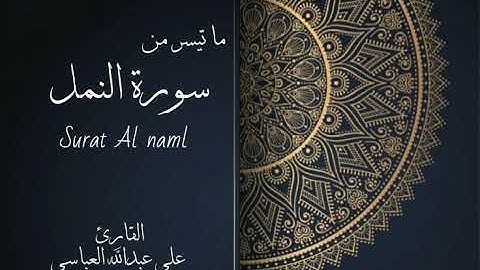 ما تيسر من
سورة النمل
Surat Al naml
القارئ
علي عبدالله العباسي